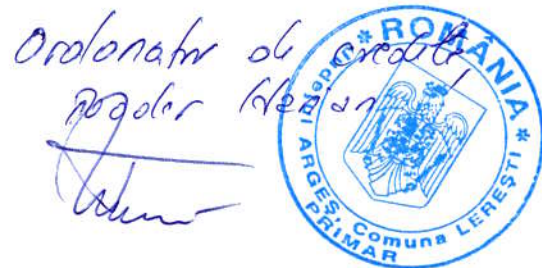 Ordonator de credite
ROMÂNIA
JUDEȚUL ARGEȘ, Comuna LEREȘTI
PRIMAR